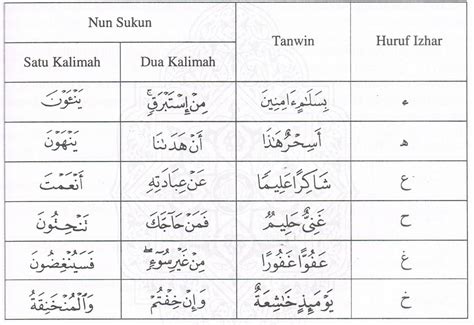 Nun Sukun Tanwin Huruf Izhar
Satu Kalimah Dua Kalimah
يَنْـَٔوْنَ مِنْ إِسْتَبْرَقٍۚ بِسَلَٰمٍ ءَامِنِينَ ء
يَنْهَوْنَ أَنْ هَدَىٰنَا أَسِحْرٌ هَٰذَا ه
أَنْعَمْتَ عَنْ عِبَادَتِهِ شَاكِرًا عَلِيمًا ع
تَنْحِتُونَ فَمَنْ حَاجَّكَ غَنِيٌّ حَلِيمٌ ح
فَسَيُنْغِضُونَ مِنْ غَيْرِ سُوٓءٍۖ عَفُوًّا غَفُورًا غ
وَالْمُنْخَنِقَةُ وَإِنْ خِفْتُمْ يَوْمَئِذٍ خَٰشِعَةٌ خ